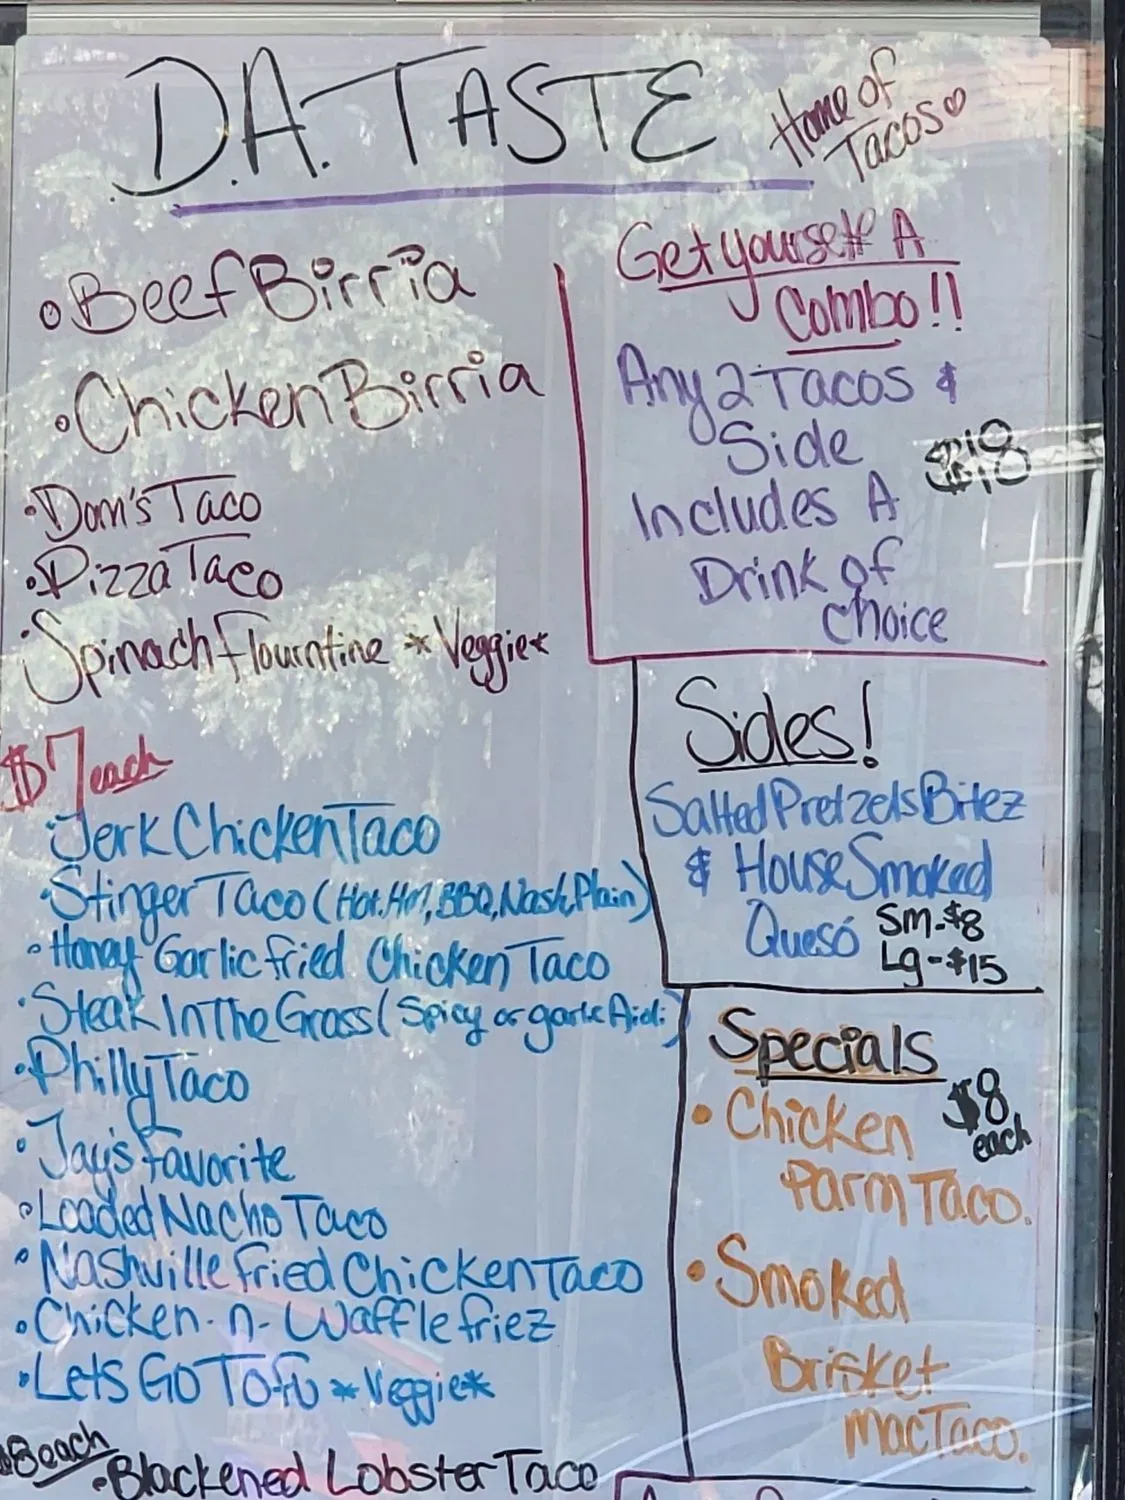 D.A. TASTE
Home of
Tacos
Beef Birria
Chicken Birria
Dom's Taco
Pizza Taco
Spinach Flourntine *Veggie*
$7 each
Jerk Chicken Taco
Stinger Taco (Hot, Hn!, BBQ, Nash, Plain)
Honey Garlic fried Chicken Taco
Steak In The Grass (Spicy or garlic Aioli)
Philly Taco
Jay's Favorite
Loaded Nacho Taco
Nashville fried Chicken Taco
Chicken-n-Waffle friez
Lets GO TOFU *Veggie*
$8 each
Blackened Lobster Taco
Get yourself A
Combo!!
Any 2 Tacos &
Side $18
Includes A
Drink of
Choice
Sides!
Salted Pretzels Bitez
& House Smoked
Quesó Sm-$8
Lg-$15
Specials
$8 each
Chicken
Parm Taco.
Smoked
Brisket
Mac Taco.